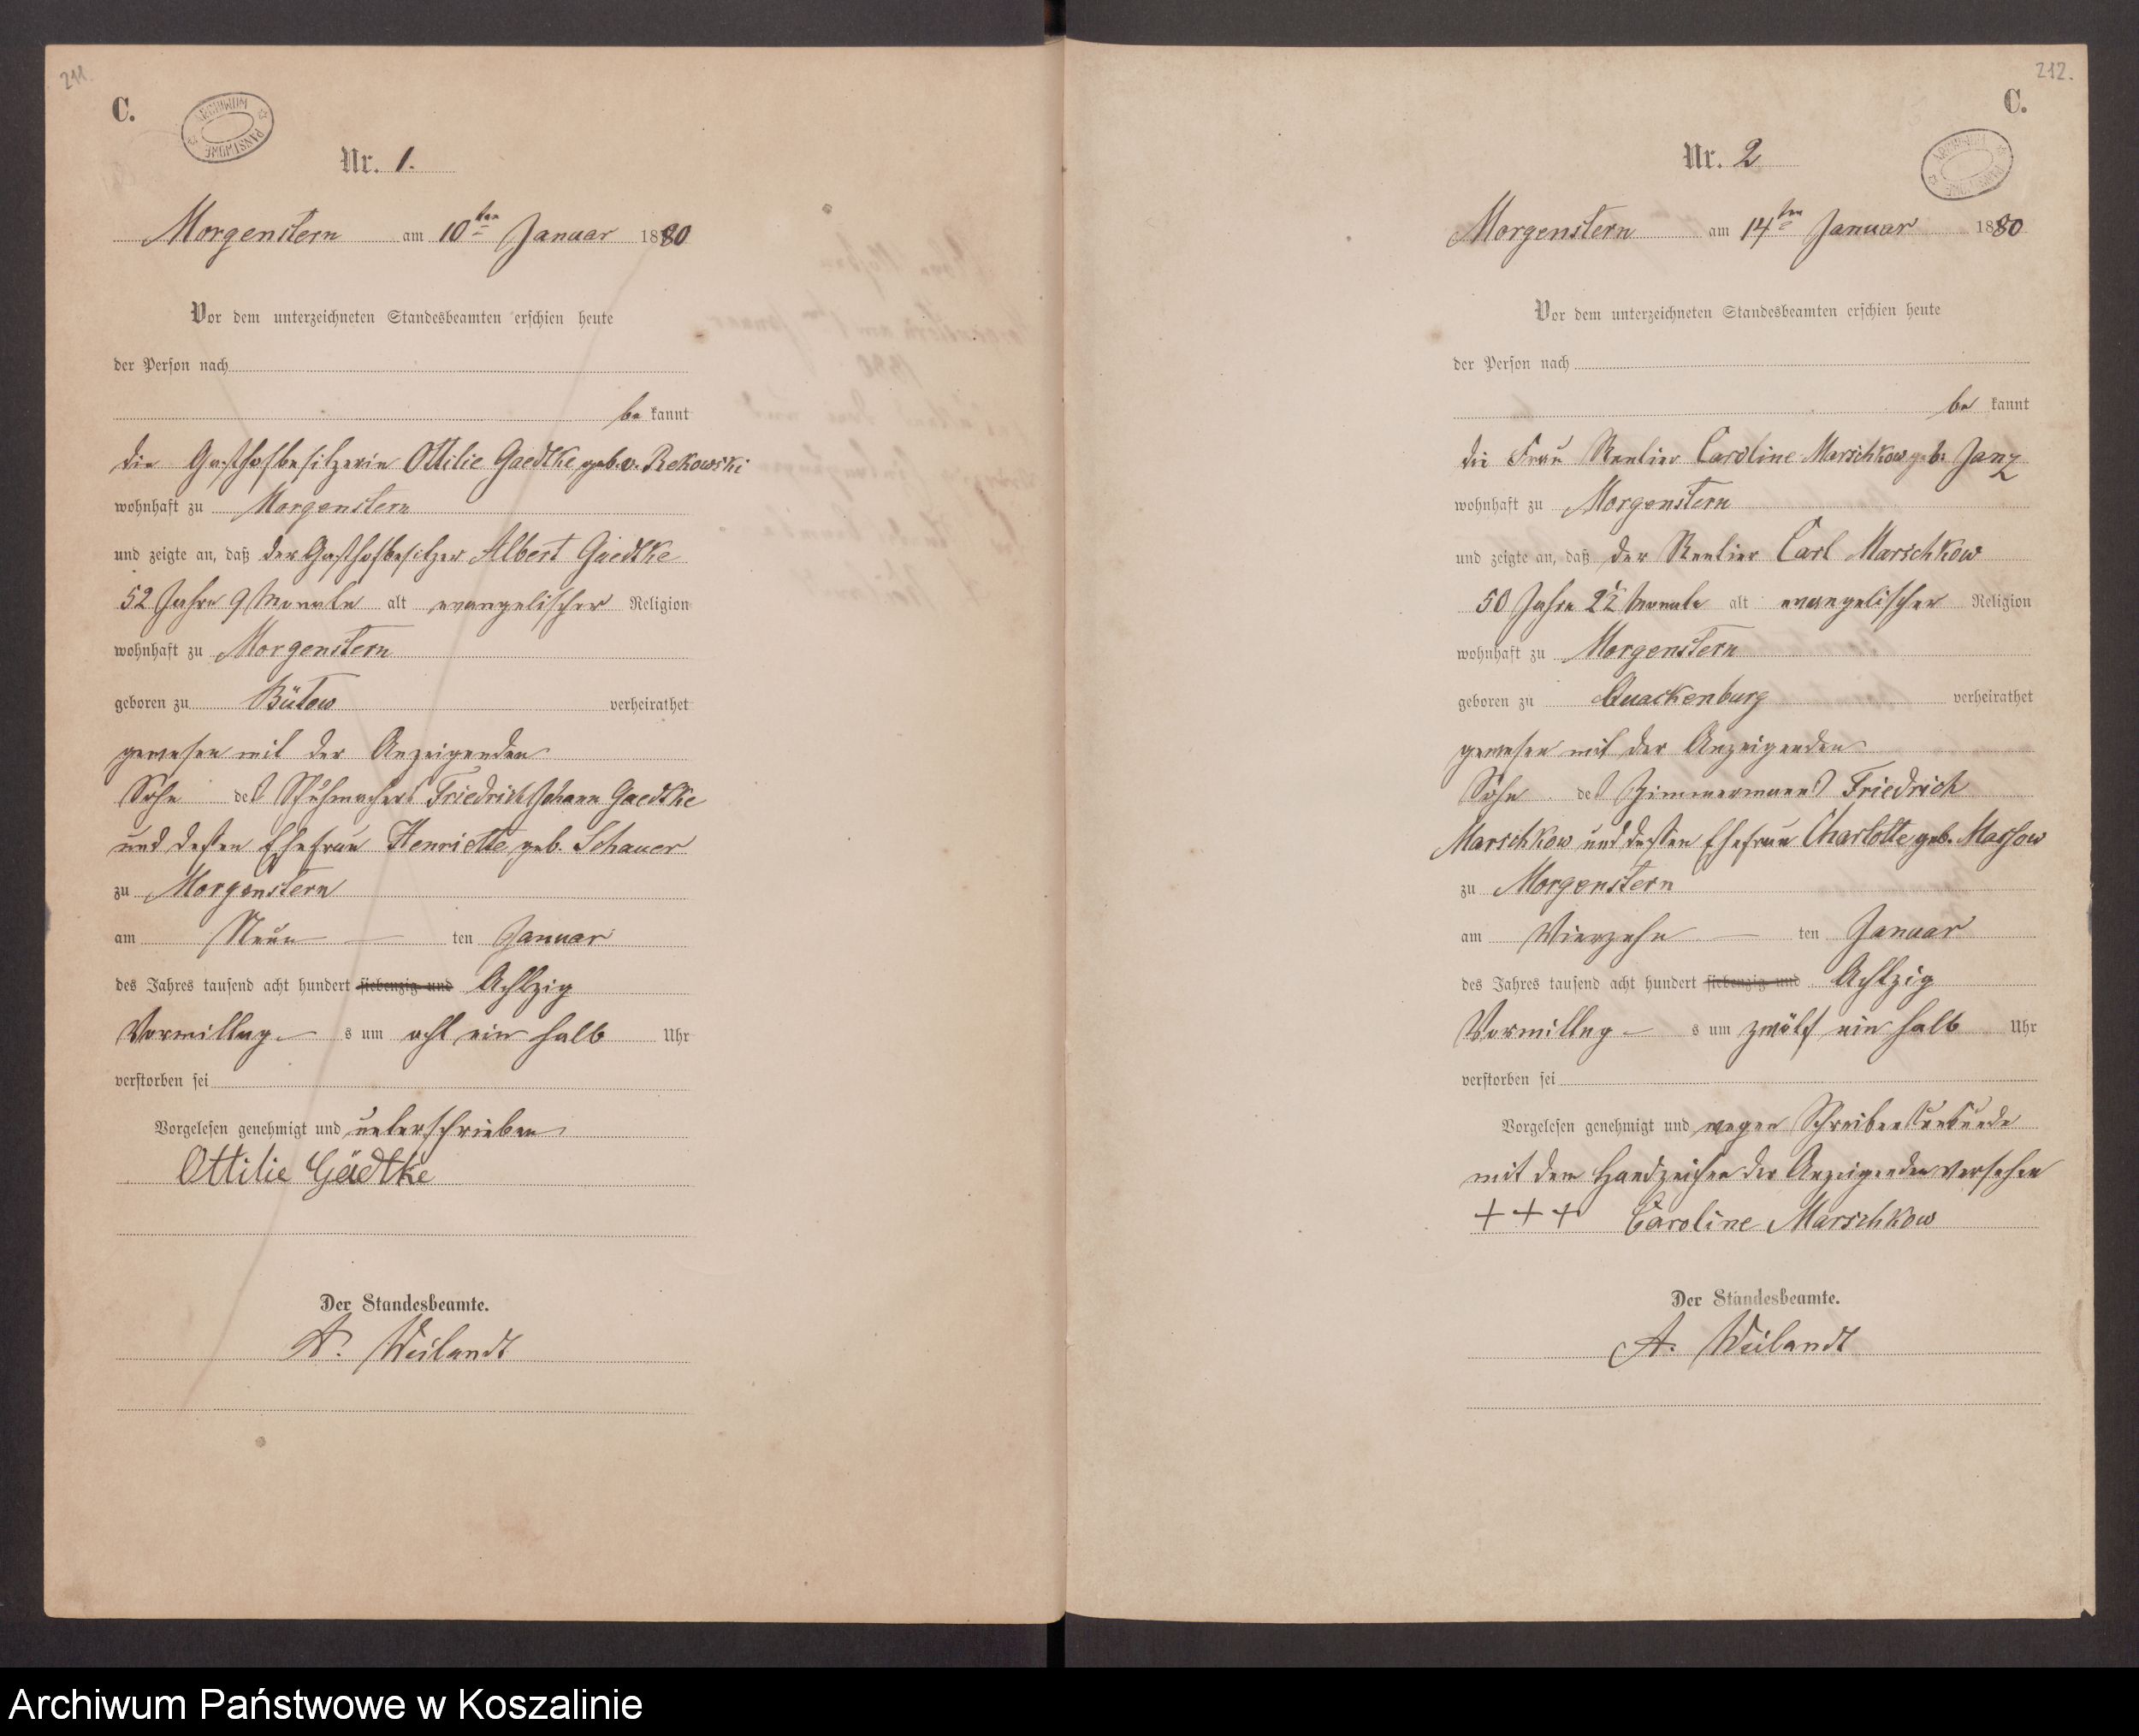 211.
C.
ARCHIWUM PAŃSTWOWE
Nr. 1.
Morgenstern am 10ten Januar 1880
Vor dem unterzeichneten Standesbeamten erschien heute
der Person nach
be kannt
die Gasthofbesitzerin Ottilie Gaedtke geb. v. Rekowski
wohnhaft zu Morgenstern
und zeigte an, daß der Gasthofbesitzer Albert Gaedtke
52 Jahre 9 Monate alt evangelischer Religion
wohnhaft zu Morgenstern
geboren zu Bütow verheirathet
gewesen mit der Anzeigenden
Sohn des Schuhmachers Friedrich Johann Gaedtke
und dessen Ehefrau Henriette geb. Schauer
zu Morgenstern
am Neun ten Januar
des Jahres tausend acht hundert siebenzig und Achtzig
Vormittag s um acht ein halb Uhr
verstorben sei
Vorgelesen genehmigt und unterschrieben
Ottilie Gädtke
Der Standesbeamte.
A. Weilandt
212.
C.
ARCHIWUM PAŃSTWOWE
Nr. 2
Morgenstern am 14ten Januar 1880
Vor dem unterzeichneten Standesbeamten erschien heute
der Person nach
be kannt
die Frau Rentier Caroline Marschkow geb. Janz
wohnhaft zu Morgenstern
und zeigte an, daß der Rentier Carl Marschkow
50 Jahre Monate alt evangelischer Religion
wohnhaft zu Morgenstern
geboren zu Quackenburg verheirathet
gewesen mit der Anzeigenden
Sohn des Zimmermanns Friedrich
Marschkow und dessen Ehefrau Charlotte geb. Massow
zu Morgenstern
am Vierzehn ten Januar
des Jahres tausend acht hundert siebenzig und Achtzig
Vormittag s um zwölf ein halb Uhr
verstorben sei
Vorgelesen genehmigt und wegen Schreibensunkunde
mit dem Handzeichen der Anzeigenden versehen
+++ Caroline Marschkow
Der Standesbeamte.
A. Weilandt
Archiwum Państwowe w Koszalinie